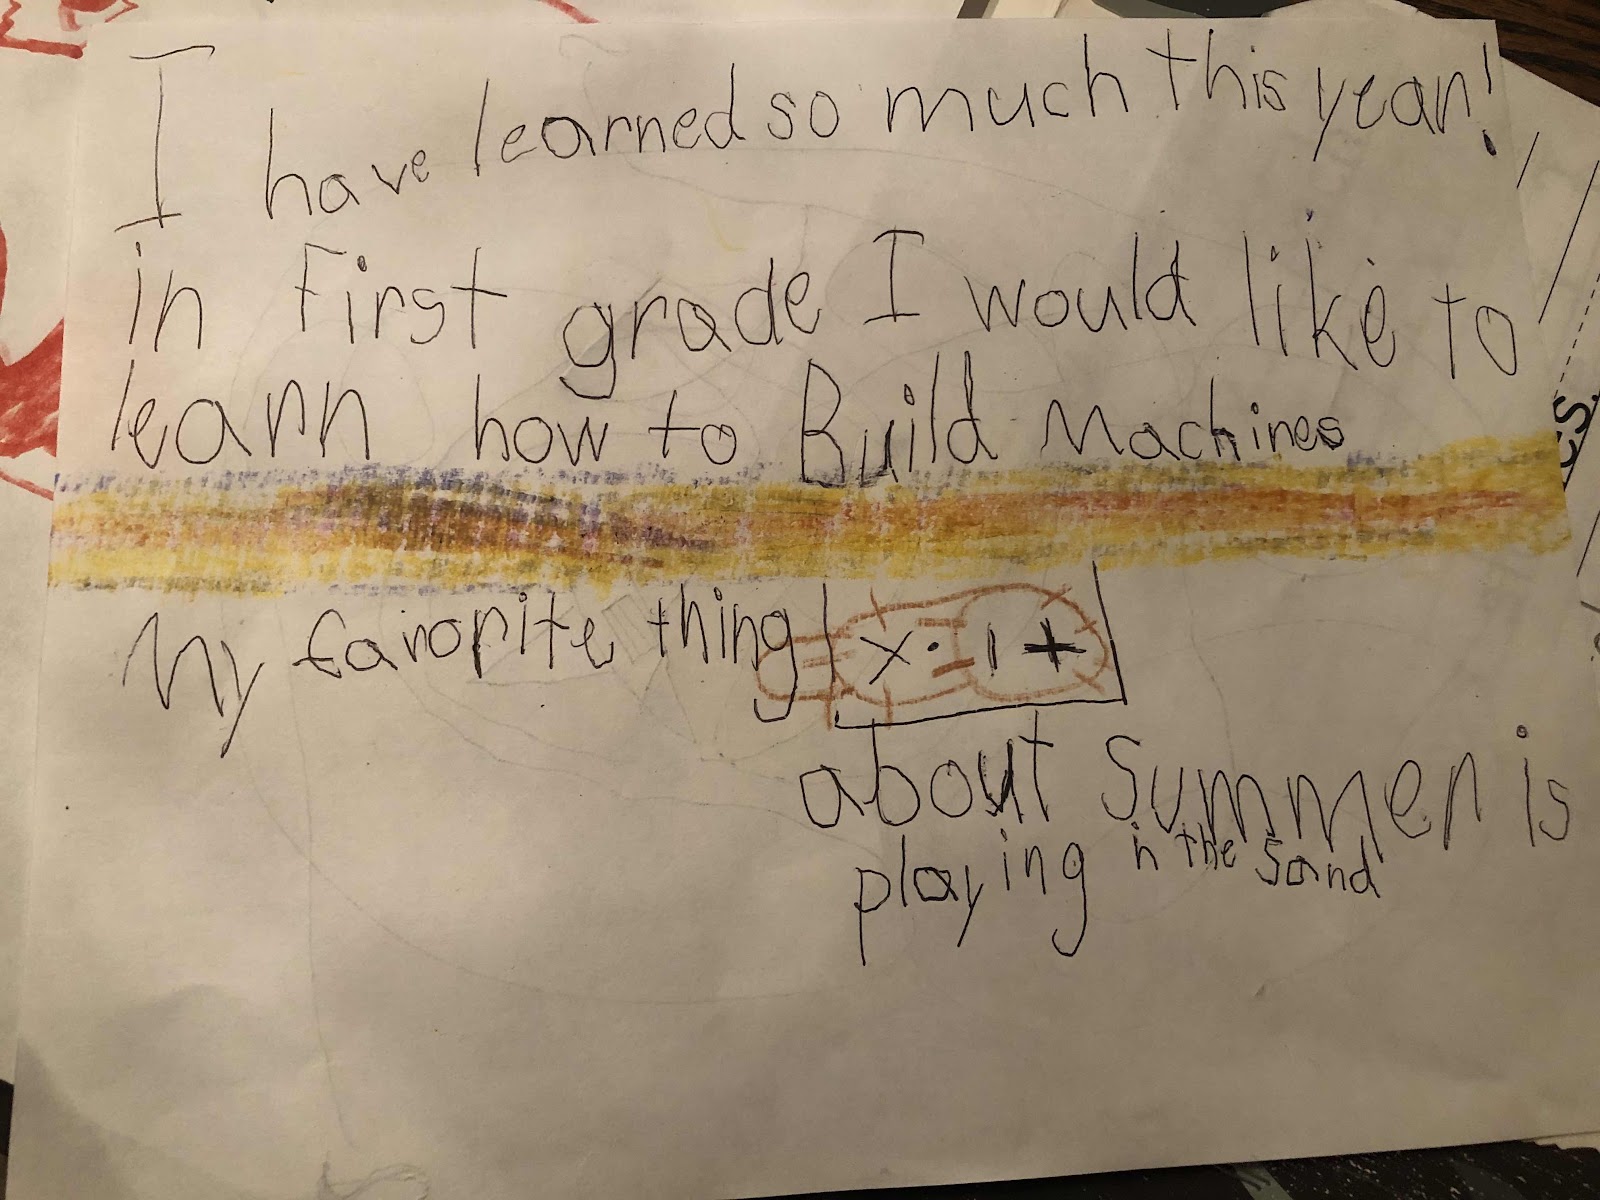 I have learned so much this year!
in First grade I would like to
learn how to Build Machines
My favorite thing
x ÷ 1 +
about Summer is
playing in the sand